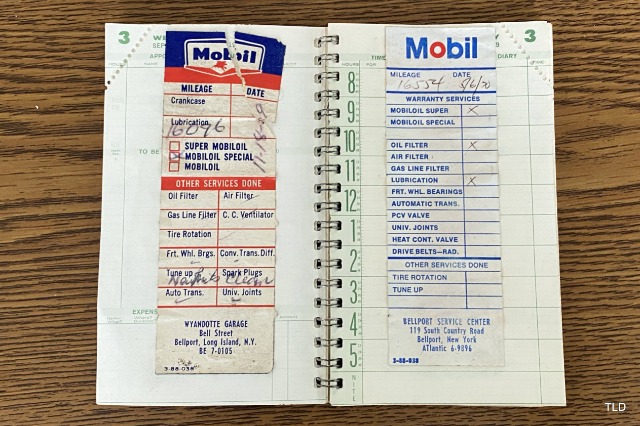 3
SEP
APPO
Mobil
MILEAGE DATE
Crankcase
Lubrication
16096
SUPER MOBILOIL
MOBILOIL SPECIAL
MOBILOIL
OTHER SERVICES DONE
Oil Filter Air Filter
Gas Line Filter C. C. Ventilator
Tire Rotation
Frt. Whl. Brgs. Conv. Trans. Diff.
Tune up Spark Plugs
Auto Trans. Univ. Joints
WYANDOTTE GARAGE
Bell Street
Bellport, Long Island, N.Y.
BE 7-0105
3-88-038
TO BE
EXPENS
TIME
DIARY
3
HOURS FOR
8
9
10
11
12
1
2
3
4
5
NITE
Mobil
MILEAGE DATE
16554 5/6/70
WARRANTY SERVICES
MOBILOIL SUPER X
MOBILOIL SPECIAL
OIL FILTER X
AIR FILTER
GAS LINE FILTER
LUBRICATION X
FRT. WHL. BEARINGS
AUTOMATIC TRANS.
PCV VALVE
UNIV. JOINTS
HEAT CONT. VALVE
DRIVE BELTS—RAD.
OTHER SERVICES DONE
TIRE ROTATION
TUNE UP
BELLPORT SERVICE CENTER
119 South Country Road
Bellport, New York
ATlantic 6-9896
3-88-038
TLD